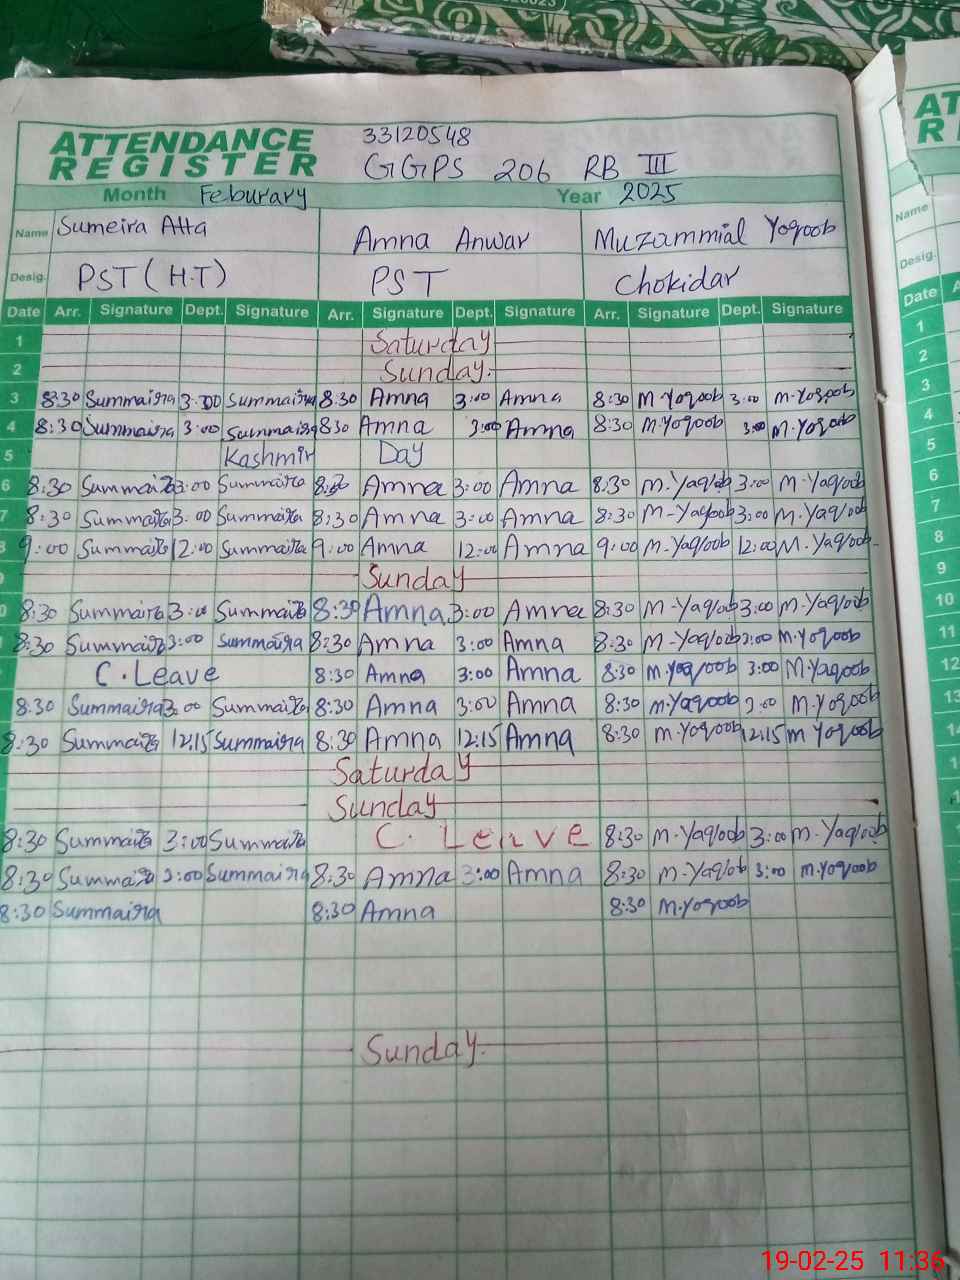 ATTENDANCE REGISTER 33120548
GGPS 206 RB III
Month Feburary Year 2025
Name Sumeira Atta Amna Anwar Muzammial Yoqoob
Desig. PST (H.T) PST Chokidar
Date Arr. Signature Dept. Signature Arr. Signature Dept. Signature Arr. Signature Dept. Signature
1 Saturday
2 Sunday.
3 8:30 Summaira 3:00 Summaira 8:30 Amna 3:00 Amna 8:30 M.Yoqoob 3:00 M.Yoqoob
4 8:30 Summaira 3:00 Summaira 8:30 Amna 3:00 Amna 8:30 M.Yoqoob 3:00 M.Yoqoob
5 Kashmir Day
6 8:30 Summaira 3:00 Summaira 8:30 Amna 3:00 Amna 8:30 M.Yaqoob 3:00 M.Yaqoob
7 8:30 Summaira 3:00 Summaira 8:30 Amna 3:00 Amna 8:30 M-Yaqoob 3:00 M.Yaqoob
9:00 Summaira 12:00 Summaira 9:00 Amna 12:00 Amna 9:00 M-Yaqoob 12:00 M.Yaqoob
Sunday
8:30 Summaira 3:00 Summaira 8:30 Amna 3:00 Amna 8:30 M-Yaqoob 3:00 M.Yaqoob
8:30 Summaira 3:00 Summaira 8:30 Amna 3:00 Amna 8:30 M-Yaqoob 3:00 M.Yoqoob
C.Leave 8:30 Amna 3:00 Amna 8:30 M.Yaqoob 3:00 M.Yaqoob
8:30 Summaira 3:00 Summaira 8:30 Amna 3:00 Amna 8:30 M.Yaqoob 3:00 M.Yoqoob
8:30 Summaira 12:15 Summaira 8:30 Amna 12:15 Amna 8:30 M.Yoqoob 12:15 M Yoqoob
Saturday
Sunday
8:30 Summaira 3:00 Summaira C. Leave 8:30 M.Yaqoob 3:00 M.Yaqoob
8:30 Summaira 3:00 Summaira 8:30 Amna 3:00 Amna 8:30 M-Yaqoob 3:00 M.Yoqoob
8:30 Summaira 8:30 Amna 8:30 M.Yoqoob
Sunday.
Name
Desig.
Date
1
2
3
4
5
6
7
8
9
10
11
12
13
19-02-25 11:36